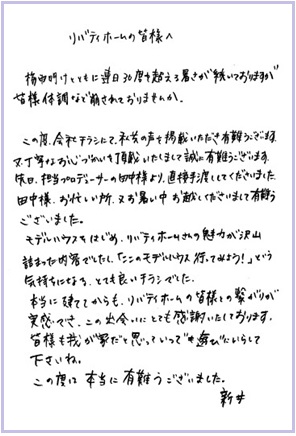 リバティホームの皆様へ
梅雨明けとともに連日30度を超える暑さが続いておりますが
皆様体調など崩されておりませんか。
この度、会社チラシにて、私共の声を掲載いただき有難うございます。
又、丁寧なお心づかいを頂戴いたしまして誠に有難うございます。
休日、担当プロデューサーの田中様より、直接手渡ししてくださいました。
田中様、お忙しい所、又お暑い中お越しくださいまして有難う
ございました。
モデルハウスをはじめ、リバティホームさんの魅力が沢山
詰まった内容でしたし、「ここのモデルハウス行ってみよう!」という
気持ちになる、とても良いチラシでした。
本当に建ててからも、リバティホームの皆様との繋がりが
実感でき、この出会いにとても感謝いたしております。
皆様も我が家だと思っていつでも遊びにいらして
下さいね。
この度は本当に有難うございました。
新井